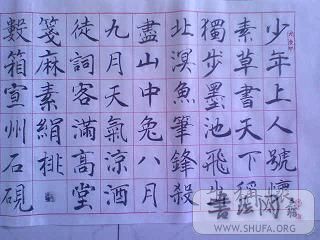 少年上人號懷
素草書天下稱
獨步墨池飛出
北溟魚筆鋒殺
盡山中兔八月
九月天氣涼酒
徒詞客滿高堂
箋麻素絹排
數箱宣州石硯
書法网
WWW.SHUFA.ORG